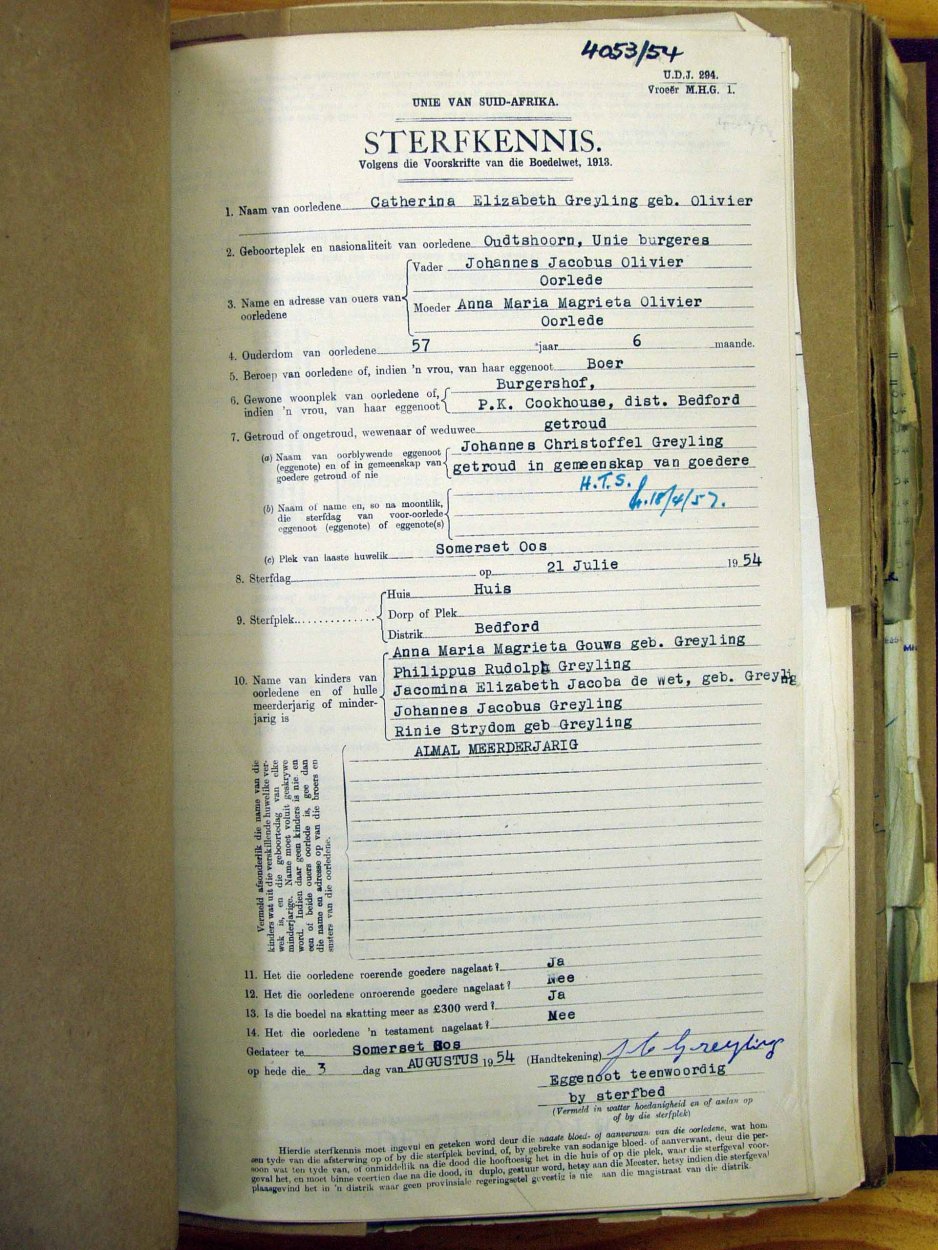 4053/54
U.D.J. 294.
Vroeër M.H.G. 1.
UNIE VAN SUID-AFRIKA.
STERFKENNIS.
Volgens die Voorskrifte van die Boedelwet, 1913.
1. Naam van oorledene Catherina Elizabeth Greyling geb. Olivier
2. Geboorteplek en nasionaliteit van oorledene Oudtshoorn, Unie burgeres
3. Name en adresse van ouers van oorledene
Vader Johannes Jacobus Olivier
Oorlede
Moeder Anna Maria Magrieta Olivier
Oorlede
4. Ouderdom van oorledene 57 jaar 6 maande.
5. Beroep van oorledene of, indien 'n vrou, van haar eggenoot Boer
6. Gewone woonplek van oorledene of, Burgershof,
indien 'n vrou, van haar eggenoot P.K. Cookhouse, dist. Bedford
7. Getroud of ongetroud, wewenaar of weduwee getroud
(a) Naam van oorblywende eggenoot Johannes Christoffel Greyling
(eggenote) en of in gemeenskap van getroud in gemeenskap van goedere
goedere getroud of nie
H.T.S.
18/4/57.
(b) Naam of name en, so na moontlik,
die sterfdag van voor-oorlede
eggenoot (eggenote) of eggenote(s)
(c) Plek van laaste huwelik Somerset Oos
8. Sterfdag op 21 Julie 1954
9. Sterfplek
Huis Huis
Dorp of Plek
Distrik Bedford
10. Name van kinders van
oorledene en of hulle
meerderjarig of minder-
jarig is
Anna Maria Magrieta Gouws geb. Greyling
Philippus Rudolph Greyling
Jacomina Elizabeth Jacoba de Wet, geb. Greyling
Johannes Jacobus Greyling
Rinie Strydom geb Greyling
ALMAL MEERDERJARIG
Vermeld afsonderlik die name van die
kinders wat uit die verskillende huwelike ver-
wek is, en die geboortedag van elke
minderjarige. Name moet voluit geskrywe
word. Indien daar geen kinders is nie en
een of beide ouers oorlede is, gee dan
die name en adresse op van die broers en
susters van die oorledene.
11. Het die oorledene roerende goedere nagelaat? Ja
12. Het die oorledene onroerende goedere nagelaat? Nee
13. Is die boedel na skatting meer as £300 werd? Ja
14. Het die oorledene 'n testament nagelaat? Nee
Gedateer te Somerset Oos
op hede die 3 dag van AUGUSTUS 1954 (Handtekening) J C Greyling
Eggenoot teenwoordig
by sterfbed
(Vermeld in watter hoedanigheid en of aldan op
of by die sterfplek)
Hierdie sterfkennis moet ingevul en geteken word deur die naaste bloed- of aanverwant van die oorledene, wat hom
een tyde van die afsterwing op of by die sterfplek bevind, of, by gebreke van sodanige bloed- of aanverwant, deur die per-
soon wat ten tyde van, of onmiddellik na die dood die hooftoesig het in die huis of op die plek, waar die sterfgeval voor-
geval het, en moet binne veertien dae na die dood, in duplo, gestuur word, hetsy aan die Meester, hetsy indien die sterfgeval
plaasgevind het in 'n distrik waar geen provinsiale regeringsetel gevestig is nie aan die magistraat van die distrik.